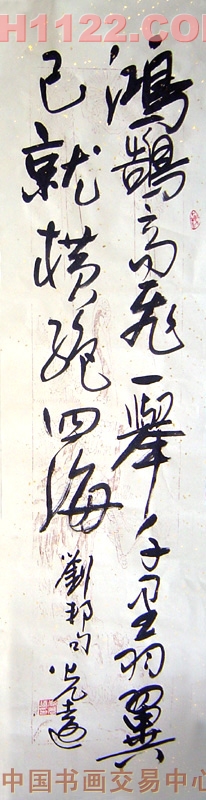 H1122.CO
鴻鵠高飛一舉千里羽翼
已就橫絕四海
劉邦句 光遠
中国书画交易中心